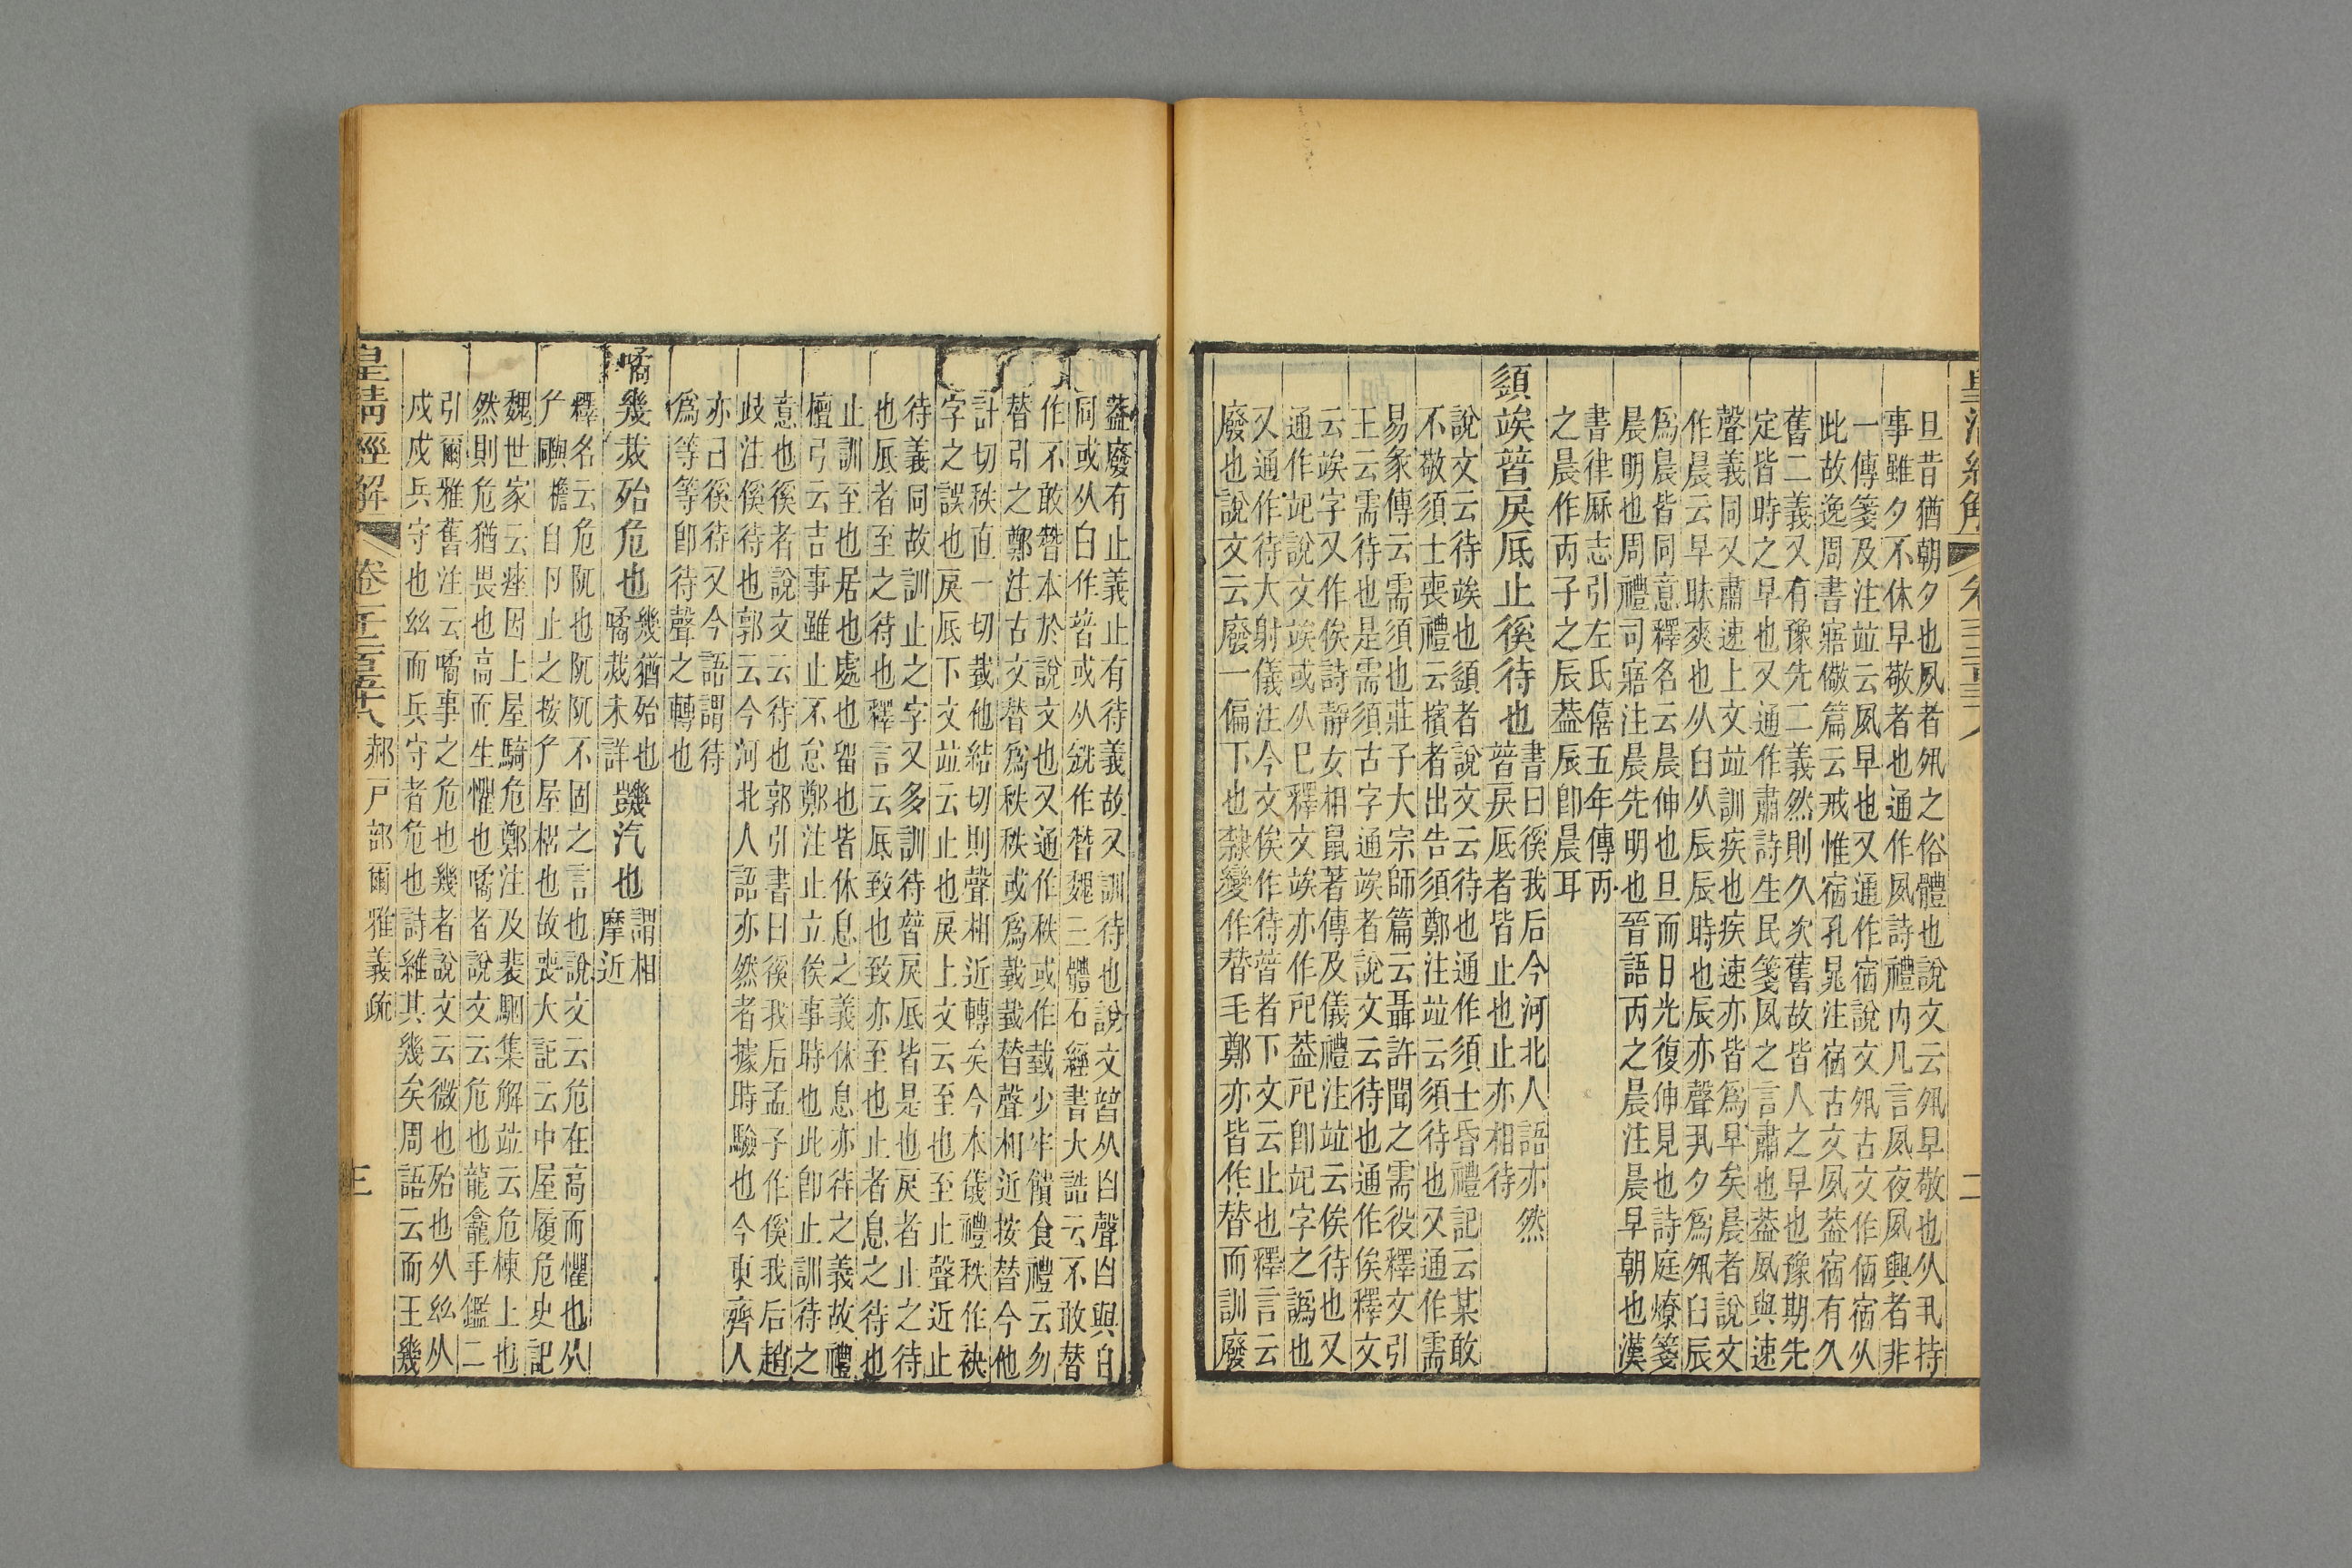 旦昔猶朝夕也夙者𠈇之俗體也說文云𡖊早敬也从丮持
事雖夕不休早敬者也通作夙詩禮内凡言夙夜夙興者非
一傳箋及注竝云夙早也又通作宿說文𡖊古文作㑉宿从
此故逸周書寤儆篇云戒惟宿孔晁注宿古文夙葢宿有久
舊二義又有豫先二義然則久次舊故皆人之早也豫期先
定皆時之早也又通作肅詩生民箋夙之言肅也葢夙與速
聲義同又肅速上文竝訓疾也疾速亦皆爲早矣晨者說文
作晨云早昧爽也从臼从辰辰時也辰亦聲丮夕爲𡖊臼辰
爲晨皆同意釋名云晨伸也旦而日光復伸見也詩庭燎箋
晨明也周禮司寤注晨先明也晉語丙之晨注晨早朝也漢
書律厤志引左氏僖五年傳丙
之晨作丙子之辰葢辰卽晨耳
頾竢朁戾厎止徯待也
書曰徯我后今河北人語亦然
朁戾厎者皆止也止亦相待
說文云待竢也頾者說文云待也通作須士昏禮記云某敢
不敬須士喪禮云擯者出告須鄭注竝云須待也又通作需
易彖傳云需須也莊子大宗師篇云聶許聞之需役釋文引
王云需待也是需須古字通竢者說文云待也通作俟釋文
云竢字又作俟詩靜女相鼠著傳及儀禮注竝云俟待也又
通作𥏳說文竢或从巳釋文竢亦作𥏳葢𥏳卽𥏳字之譌也
又通作待大射儀注今文俟作待朁者下文云止也釋言云
廢也說文云廢一偏下也隸變作替毛鄭亦皆作替而訓廢
葢廢有止義止有待義故又訓待也說文朁从囟聲囟與白
同或从白作朁或从兟作暜魏三體石經書大誥云不敢替
作不敢朁本於說文也又通作秩或作㦶少牢饋食禮云勿
替引之鄭注古文替爲秩秩或爲㦶㦶替聲相近按替今他
計切秩直一切㦶他結切則聲相近轉矣今本儀禮秩作袂
字之誤也戾厎下文竝云止也戾上文云至也至止聲近止
待義同故訓止之字又多訓待朁戾厎皆是也戾者止之待
也厎者至之待也釋言云厎致也致亦至也止者息之待也
止訓至也居也處也留也皆休息之義休息亦待之義故禮
檀弓云吉事雖止不怠鄭注止立俟事時也此卽止訓待之
意也徯者說文云待也郭引書曰徯我后孟子作徯我后趙
歧注徯待也郭云今河北人語亦然者據時驗也今東齊人
亦己徯待又今語謂待
爲等等卽待聲之轉也
噊幾烖殆危也
幾猶殆也
噊烖未詳
譏汽也
謂相
摩近
釋名云危阢也阢阢不固之言也說文云危在高而懼也从
厃𨸏檐自卪止之按厃屋梠也故喪大記云中屋履危史記
魏世家云痤因上屋騎危鄭注及裴駰集解竝云危棟上也
然則危猶畏也高而生懼也噊者說文云危也龍龕手鑑二
引爾雅舊注云噊事之危也幾者說文云微也殆也从𢆶从
戍戍兵守也𢆶而兵守者危也詩維其幾矣周語云而王幾
皇清經解
卷千二百五十八
郝戸部爾雅義疏
三